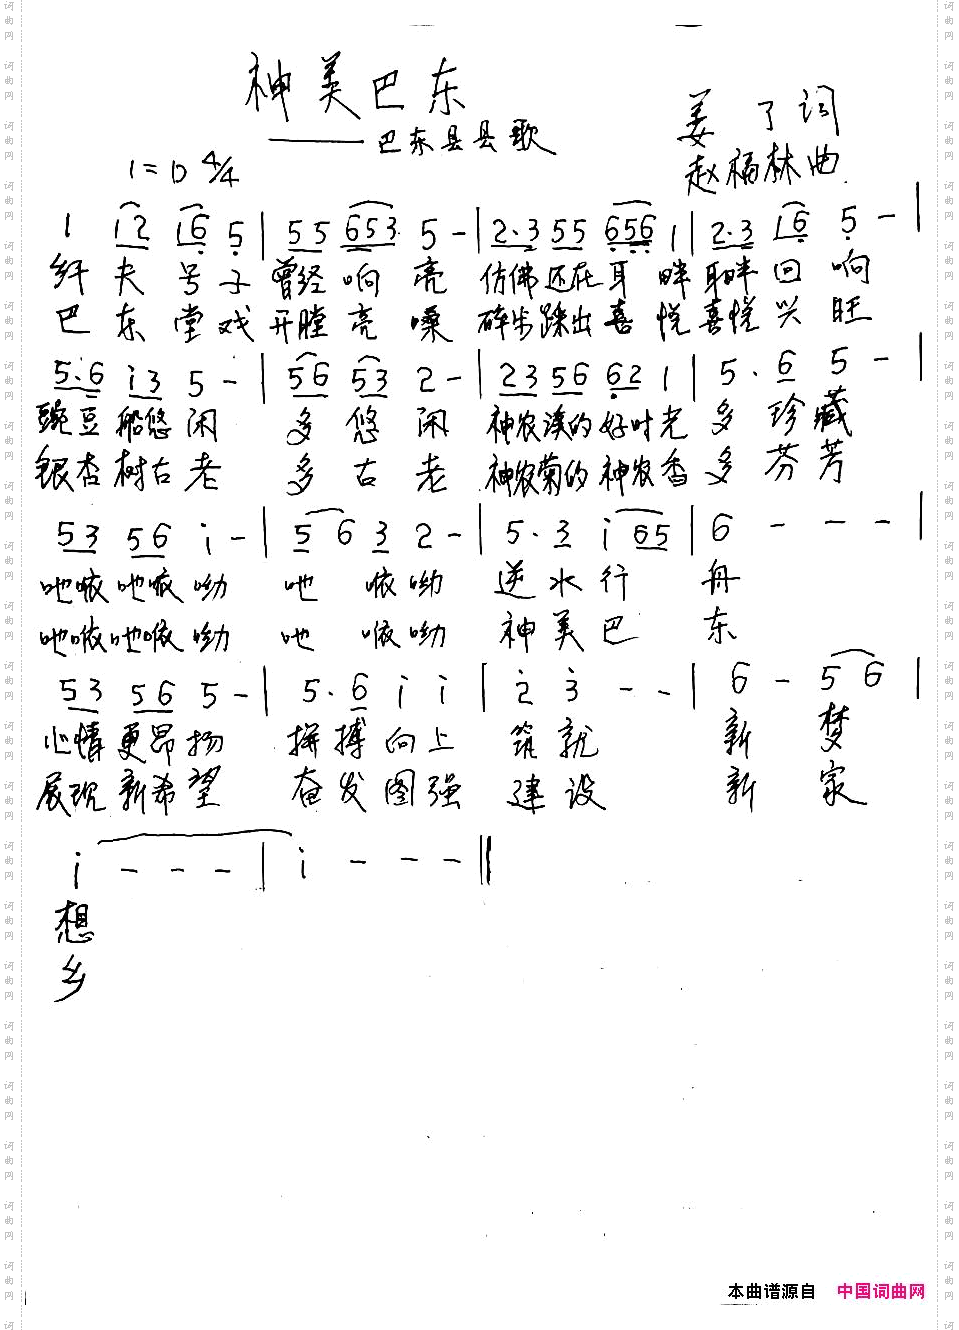 神美巴东
——巴东县县歌
姜了词
赵福林曲
1=D 4/4
1 i2 i6 5 | 55 653 5 - | 2·3 55 656 1 | 2·3 i6 5 - |
纤夫号子曾经响亮 仿佛还在耳畔耳畔回响
巴东堂戏开膛亮嗓 碎步踩出喜悦喜悦兴旺
5·6 i3 5 - | 56 53 2 - | 23 56 62 1 | 5·6 5 - |
豌豆船悠闲 多悠闲 神农溪的好时光多珍藏
银杏树古老 多古老 神农菊的神农香多芬芳
53 56 i - | 5 6 3 2 - | 5·3 i 65 | 6 - - - |
吔咴吔咴呦 吔咴呦 逆水行舟
吔咴吔咴呦 吔咴呦 神美巴东
53 56 5 - | 5·6 i i | 2 3 - - | 6 - 5 6 |
心情更昂扬 拼搏向上 筑就 新梦
展现新希望 奋发图强 建设 新家
i - - - | i - - - ||
想
乡
本曲谱源自 中国词曲网